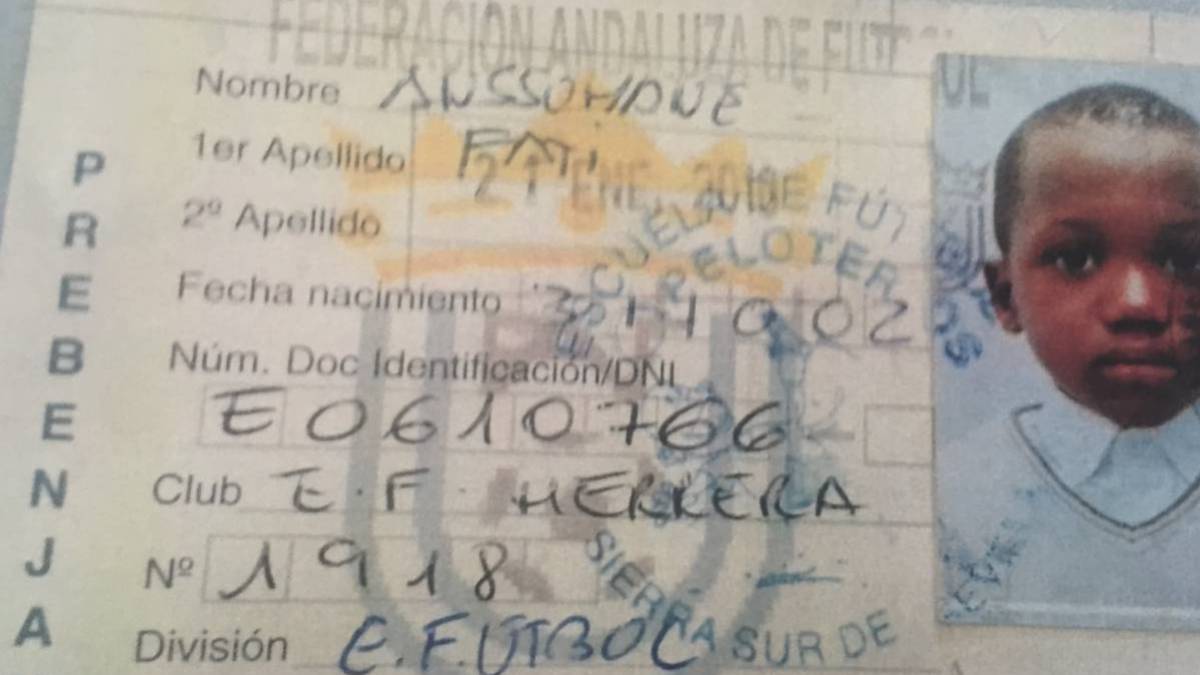 FEDERACIÓN ANDALUZA DE FUTBOL
Nombre ANSSOMANE
1er Apellido FATI
21 ENE. 2010
2º Apellido
Fecha nacimiento 311002
Núm. Doc Identificación/DNI
E0610766
Club E.F. HERRERA
Nº 1918
División E. FUTBOL
PREBENJA
ESCUELA DE FÚT
PELOTEROS
SIERRA SUR DE